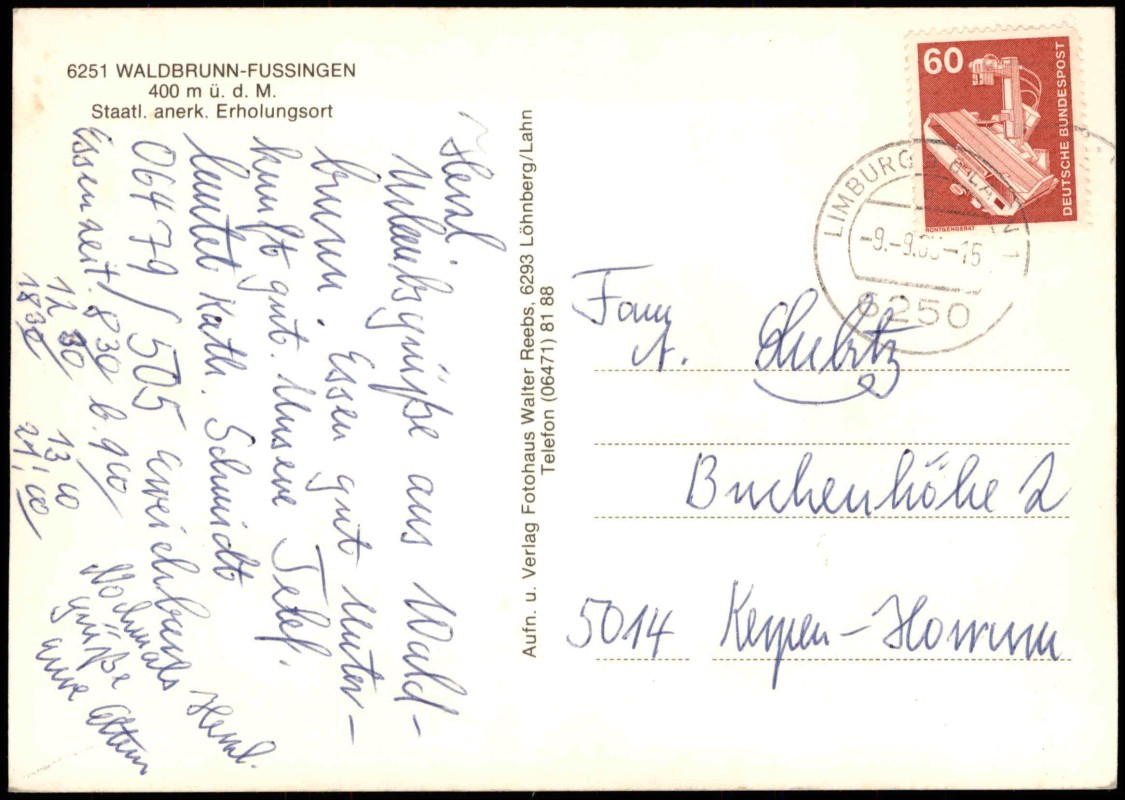 6251 WALDBRUNN-FUSSINGEN
400 m ü. d. M.
Staatl. anerk. Erholungsort
Herzl
Urlaubsgrüße aus Wald-
brunn. Essen gut Unter-
kunft gut. Unsere Telef.
lautet Kath. Schmidt
06479/505 erreichbar
Essenzeit. 830 b. 900
12 30 13 00
18 30 21,00
Nochmals Herzl.
grüße
eure Eltern
Aufn. u. Verlag Fotohaus Walter Reebs, 6293 Löhnberg/Lahn
Telefon (06471) 81 88
60
DEUTSCHE BUNDESPOST
RÖNTGENGERÄT
LIMBURG
1
-9.-9. -15
6250
Fam
A.
Buchenhöhe 2
5014 Kerpen-Horrem